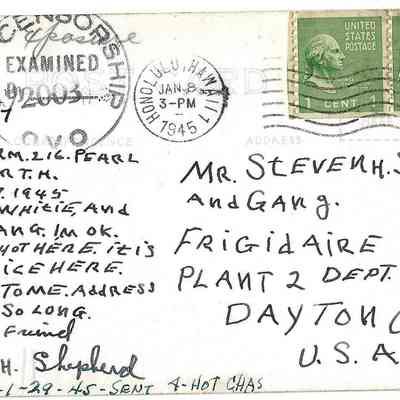 Exposure
CENSORSHIP
EXAMINED
By 2003
OVO
HONOLULU, HAWAII
JAN 8
3-PM
1945
1
UNITED
STATES
POSTAGE
1 CENT 1
CORRESPONDENCE
ADDRESS
RM. 216. PEARL
R T.H.
1945
WHITIE, AND
ANG. IM OK.
HOT HERE. IT IS
ICE HERE.
TO ME. ADDRESS
SO LONG.
Friend
H. Shepherd
1-29-45-SENT 4-HOT CHAS
MR. STEVEN H. S
AND GANG.
FRIGIDAIRE
PLANT 2 DEPT.
DAYTON
U.S.A